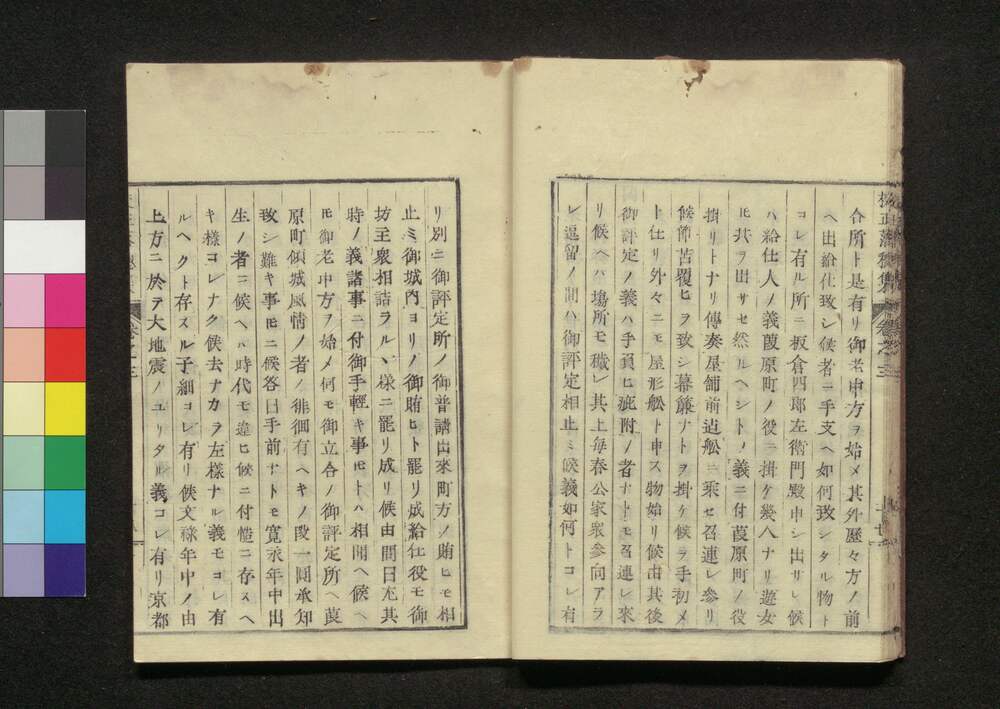 合所ト是有リ御老中方ヲ始メ其外歴々方ノ前
ヘ出給仕致シ候者ニ手支ヘ如何致シタル物ト
コレ有ル所ニ板倉四郎左衛門殿申シ出サレ候
ハ給仕人ノ義葭原町ノ役ニ掛ケ幾人ナリ遊女
𪜈共ヲ出サセ然ルヘシトノ義ニ付葭原町ノ役
掛リトナリ傳奏屋舗前迠舩ニ乗セ召連レ参リ
候節苫覆ヒヲ致シ幕簾ナトヲ掛ケ候ヲ手初メ
ト仕リ外々ニモ屋形舩ト申ス物始リ候由其後
御評定ノ義ハ手負ヒ疵附ノ者ナトモ召連レ來
リ候ヘハ場所モ穢レ其上毎春公家衆参向アラ
レ逗留ノ間ハ御評定相止ミ候義如何トコレ有
リ別ニ御評定所ノ御普請出來町方ノ賄ヒモ相
止ミ御城内ヨリノ御賄ヒト罷リ成給仕役モ御
坊主衆相詰ラルヽ様ニ罷リ成リ候由間日尤其
時ノ義諸事ニ付御手輕キ事𪜈トハ相聞ヘ候ヘ
𪜈御老中方ヲ始メ何モ御立合ノ御評定所ヘ葭
原町傾城風情ノ者ノ徘徊有ヘキノ段一圓承知
致シ難キ事𪜈ニ候答曰手前ナトモ寛永年中出
生ノ者ニ候ヘハ時代モ違ヒ候ニ付慥ニ存スヘ
キ様コレナク候去ナカラ左様ナル義モコレ有
ルヘクト存スル子細コレ有リ候文禄年中ノ由
上方ニ於テ大地震ノユリタル義コレ有リ京都